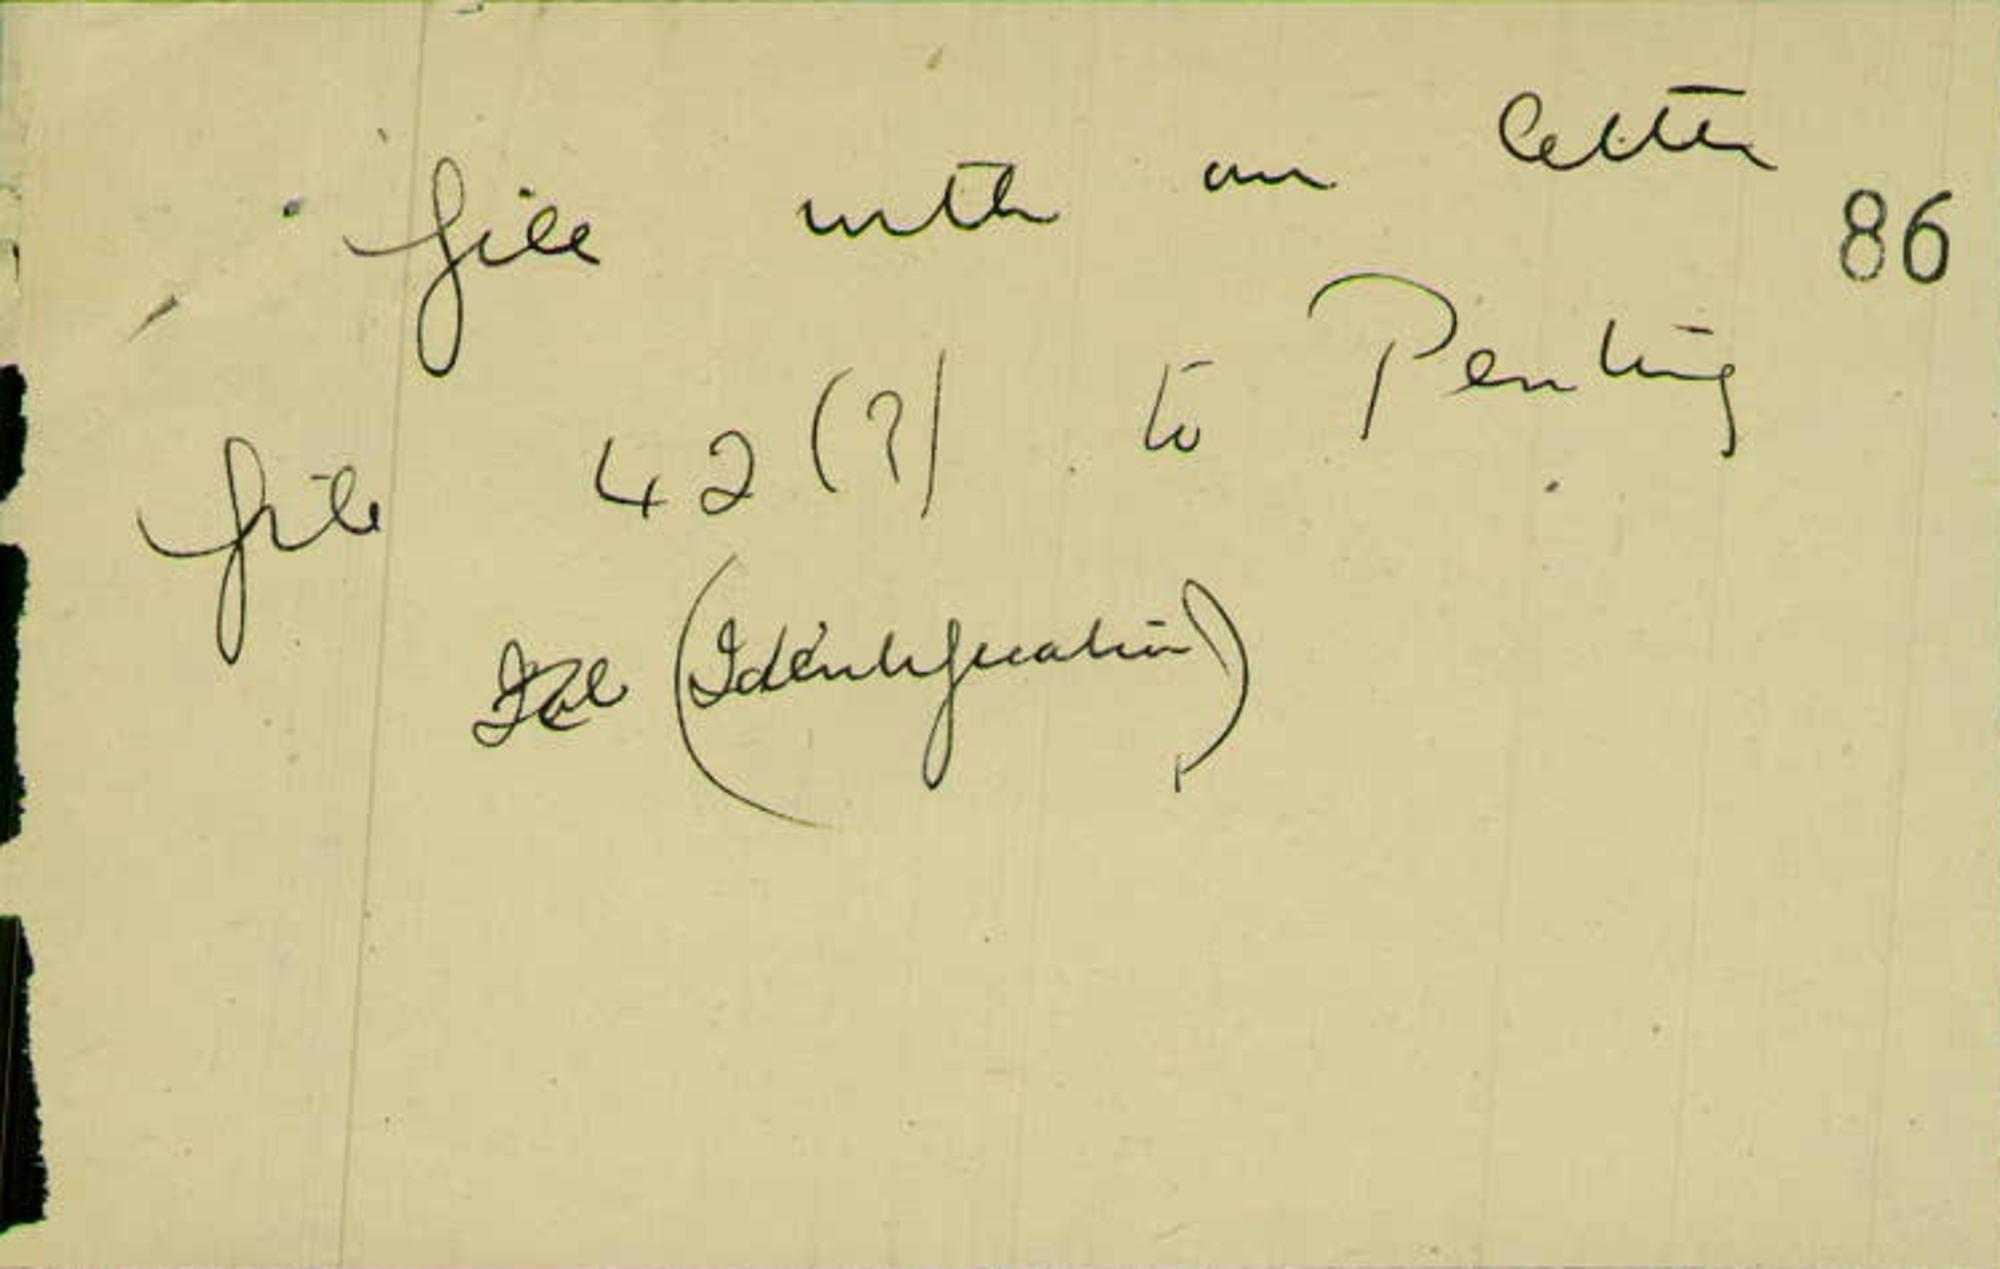 file with our letter
86
file 42 (?) to Penting
(Identification)